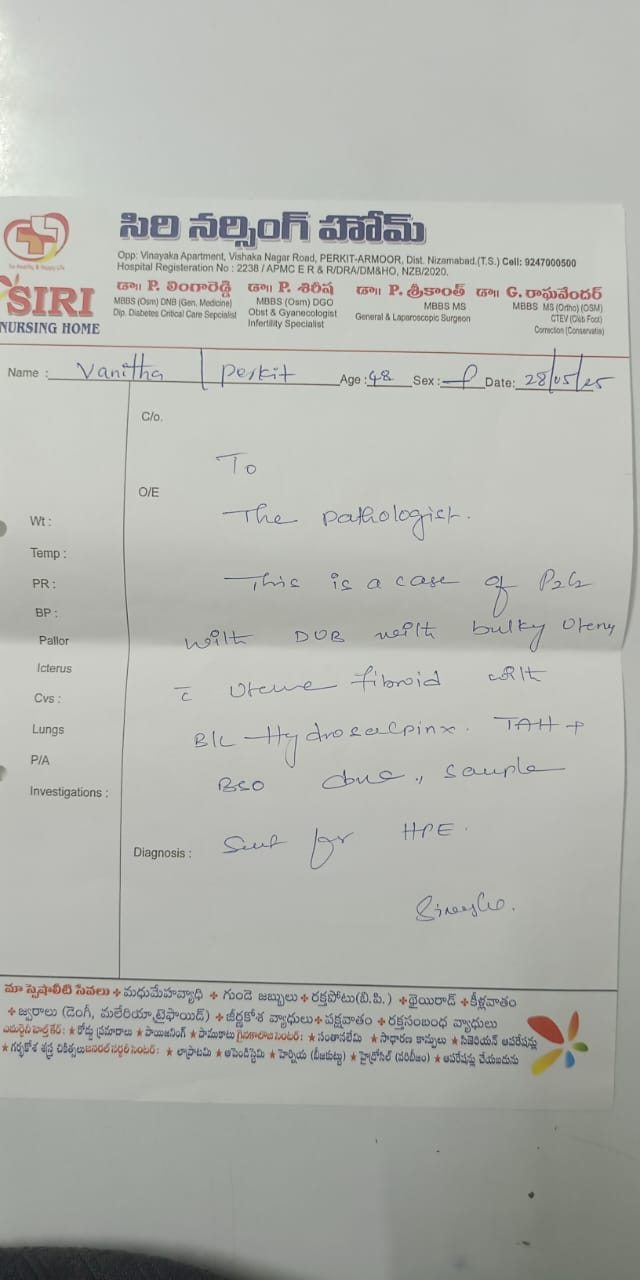 సిరి నర్సింగ్ హోమ్
Opp: Vinayaka Apartment, Vishaka Nagar Road, PERKIT-ARMOOR, Dist. Nizamabad.(T.S.) Cell: 9247000500
Hospital Registeration No : 2238 / APMC E R & R/DRA/DM&HO, NZB/2020.
SIRI
NURSING HOME
డా॥ P. లింగారెడ్డి
MBBS (Osm) DNB (Gen. Medicine)
Dip. Diabetes Critical Care Sepcialist
డా॥ P. శిరీష
MBBS (Osm) DGO
Obst & Gynaecologist
Infertility Specialist
డా॥ P. శ్రీకాంత్
MBBS MS
General & Laparoscopic Surgeon
డా॥ G. రాఘవేందర్
MBBS MS (Ortho) (OSM)
CTEV (Club Foot)
Correction (Conservatia)
Name : Vanitha / Perkit Age : 48 Sex : f Date: 28/05/25
C/o.
To
O/E
The pathologist.
Wt :
Temp :
This is a case of P2L2
PR :
BP :
with DUB with bulky Uterus
Pallor
Icterus
c̄ Uterine fibroid with
Cvs :
Lungs
B/L Hydrosalpinx. TAH +
P/A
BSO done, sample
Investigations :
Diagnosis : Sent for HPE.
మా స్పెషాలిటీ సేవలు + మధుమేహవ్యాధి + గుండె జబ్బులు + రక్తపోటు(బి.పి.) + థైయిరాడ్ + కీళ్లవాతం
+ జ్వరాలు (డెంగీ, మలేరియా,టైఫాయిడ్) + జీర్ణకోశ వ్యాధులు + పక్షవాతం + రక్తసంబంధ వ్యాధులు
★ రోడ్డు ప్రమాదాలు ★ పాయిజనింగ్ ★ పాముకాటు ★ సంతానలేమి ★ సాధారణ కాన్పులు ★ సిజేరియన్ ఆపరేషన్లు
★ గర్భకోశ శస్త్ర చికిత్సలు ★ అపెండిస్టెమి ★ హెర్నియ ★ హైడ్రోసిల్ ★ ఆపరేషన్లు చేయబడును